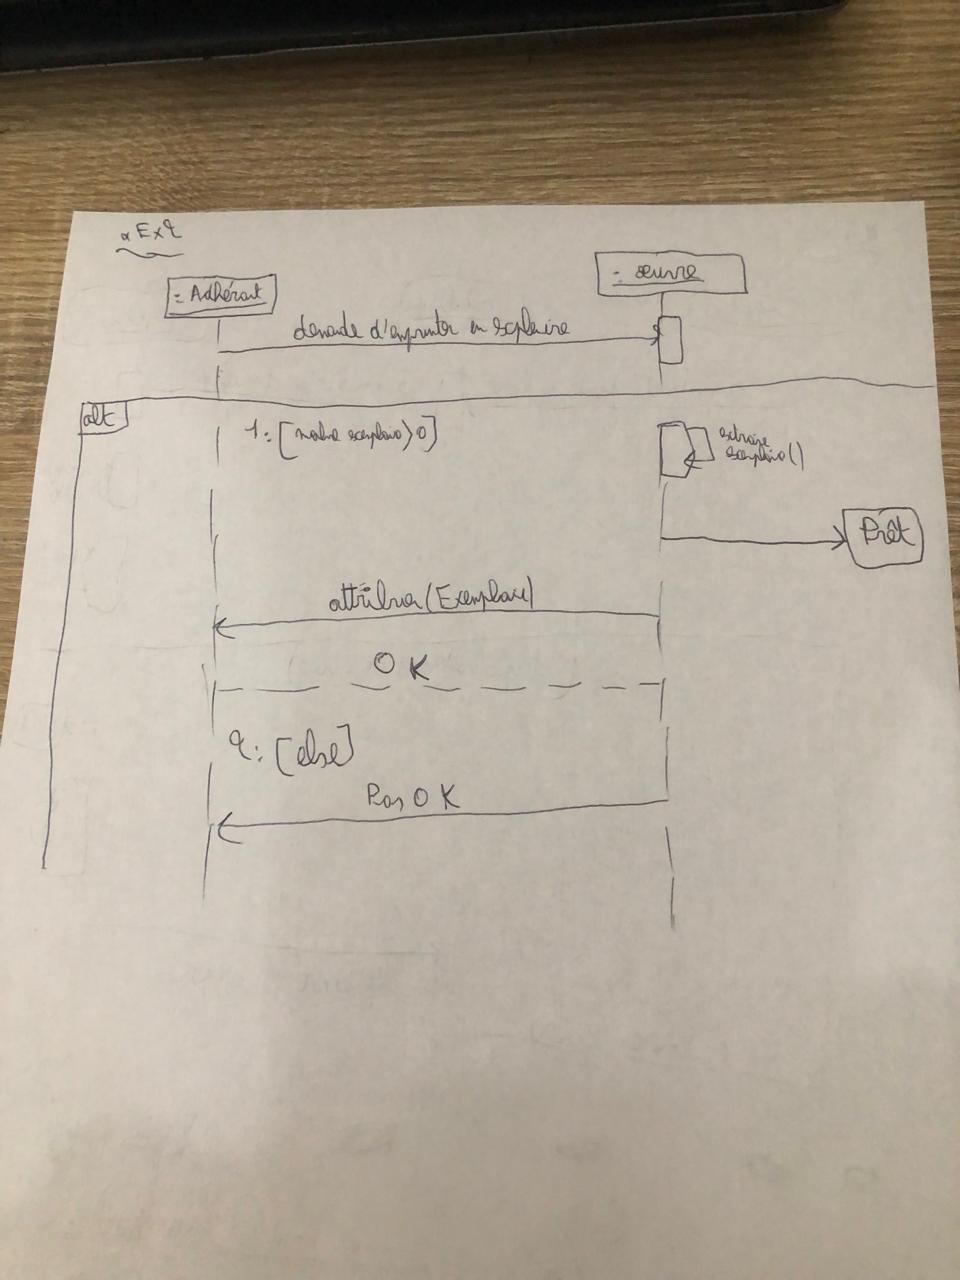 Ex 2
: Adhérent
: œuvre
demande d'emprunter un exemplaire
alt
1: [nombre exemplaire > 0]
extraire
exemplaire()
Prêt
attribuer (Exemplaire)
OK
2: [else]
Pas OK